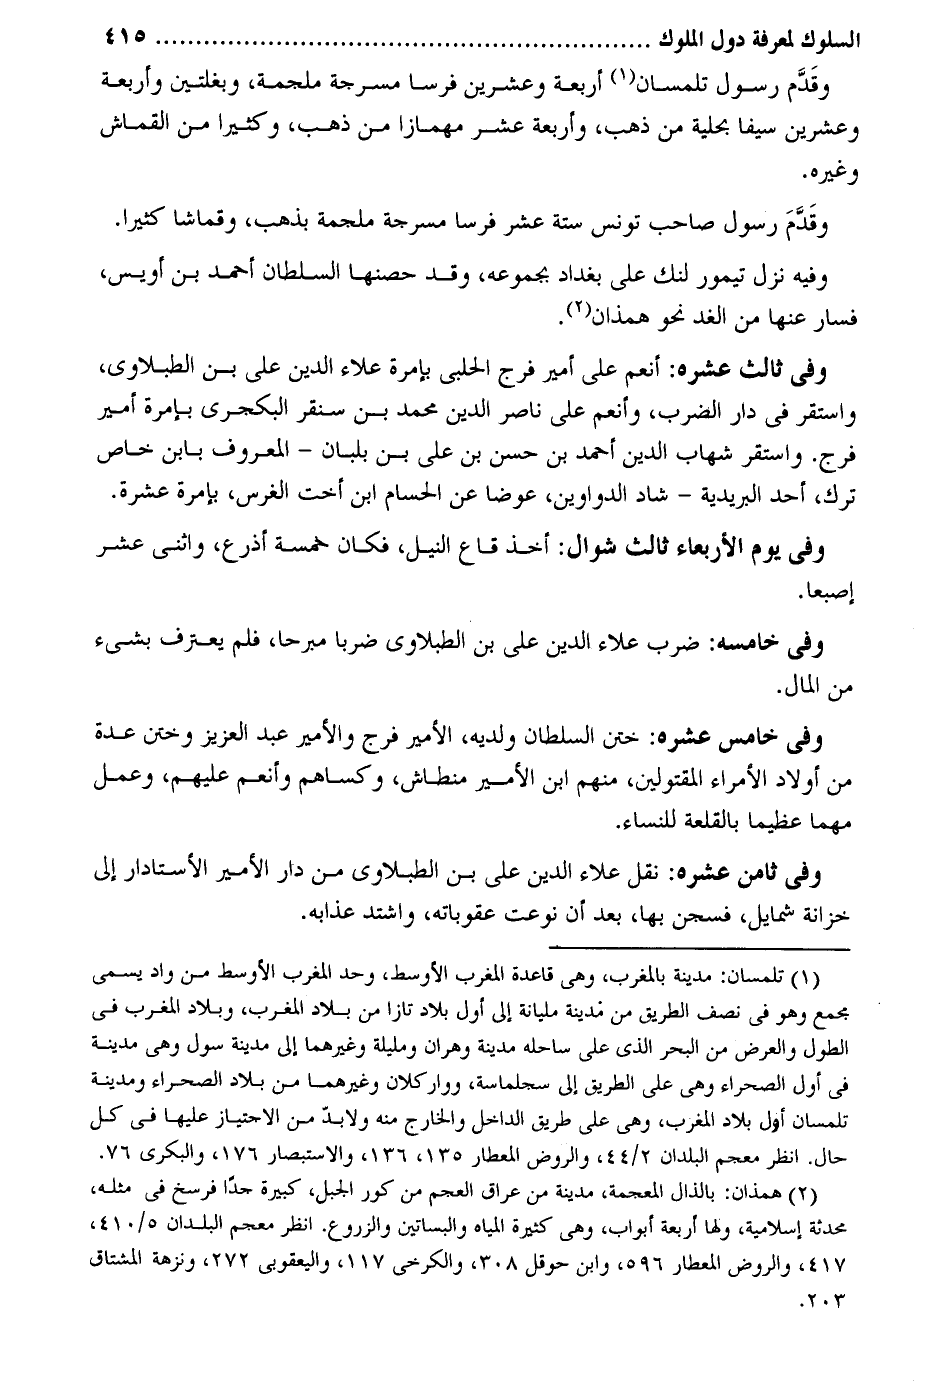 السلوك لمعرفة دول الملوك ............................................................ ٤١٥
وقَدَّم رسول تلمسان(١) أربعة وعشرين فرسا مسرجة ملجمة، وبغلتين وأربعة
وعشرين سيفا بحلية من ذهب، وأربعة عشر مهمازا من ذهب، وكثيرا من القماش
وغيره.
وقَدَّمَ رسول صاحب تونس ستة عشر فرسا مسرجة ملجمة بذهب، وقماشا كثيرا.
وفيه نزل تيمور لنك على بغداد بجموعه، وقد حصنها السلطان أحمد بن أويس،
فسار عنها من الغد نحو همذان(٢).
وفى ثالث عشره: أنعم على أمير فرج الحلبى بإمرة علاء الدين على بن الطبلاوى،
واستقر فى دار الضرب، وأنعم على ناصر الدين محمد بن سنقر البكجرى بإمرة أمير
فرج. واستقر شهاب الدين أحمد بن حسن بن على بن بلبان – المعروف بابن خاص
ترك، أحد البريدية – شاد الدواوين، عوضا عن الحسام ابن أخت الغرس، بإمرة عشرة.
وفى يوم الأربعاء ثالث شوال: أخذ قاع النيل، فكان خمسة أذرع، واثنى عشر
إصبعا.
وفى خامسه: ضرب علاء الدين على بن الطبلاوى ضربا مبرحا، فلم يعترف بشىء
من المال.
وفى خامس عشره: ختن السلطان ولديه، الأمير فرج والأمير عبد العزيز وختن عدة
من أولاد الأمراء المقتولين، منهم ابن الأمير منطاش، وكساهم وأنعم عليهم، وعمل
مهما عظيما بالقلعة للنساء.
وفى ثامن عشره: نقل علاء الدين على بن الطبلاوى من دار الأمير الأستادار إلى
خزانة شمايل، فسجن بها، بعد أن نوعت عقوباته، واشتد عذابه.
(١) تلمسان: مدينة بالمغرب، وهى قاعدة المغرب الأوسط، وحد المغرب الأوسط من واد يسمى
بجمع وهو فى نصف الطريق من مدينة مليانة إلى أول بلاد تازا من بلاد المغرب، وبلاد المغرب فى
الطول والعرض من البحر الذى على ساحله مدينة وهران ومليلة وغيرهما إلى مدينة سول وهى مدينة
فى أول الصحراء وهى على الطريق إلى سجلماسة، وواركلان وغيرهما من بلاد الصحراء ومدينة
تلمسان أول بلاد المغرب، وهى على طريق الداخل والخارج منه ولابدّ من الاحتياز عليها فى كل
حال. انظر معجم البلدان ٤٤/٢، والروض المعطار ١٣٥، ١٣٦، والاستبصار ١٧٦، والبكرى ٧٦.
(٢) همذان: بالذال المعجمة، مدينة من عراق العجم من كور الجبل، كبيرة جدًا فرسخ فى مثله،
محدثة إسلامية، ولها أربعة أبواب، وهى كثيرة المياه والبساتين والزروع. انظر معجم البلدان ٤١٠/٥،
٤١٧، والروض المعطار ٥٩٦، وابن حوقل ٣٠٨، والكرخى ١١٧، واليعقوبى ٢٧٢، ونزهة المشتاق
٢٠٣.